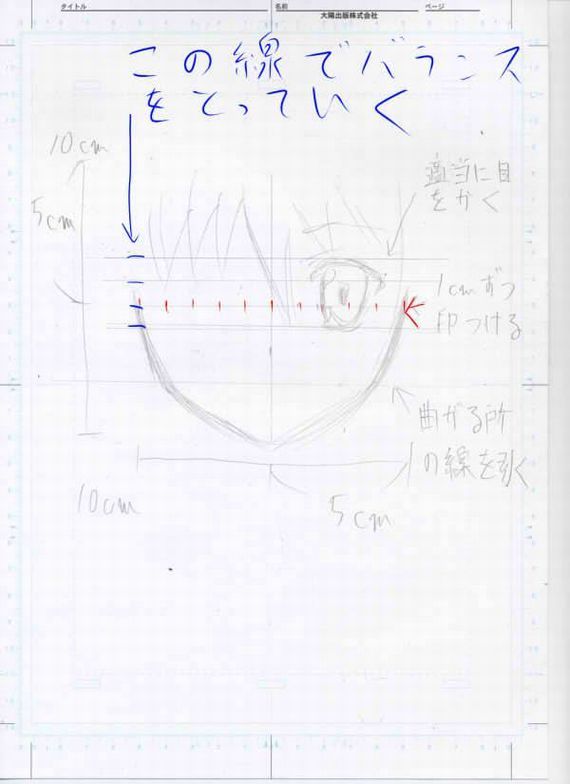 タイトル 名前 ページ
大陽出版株式会社
この線でバランス
をとっていく
10cm
5cm
適当に目
をかく
1cmずつ
印つける
曲がる所
の線を引く
10cm
5cm